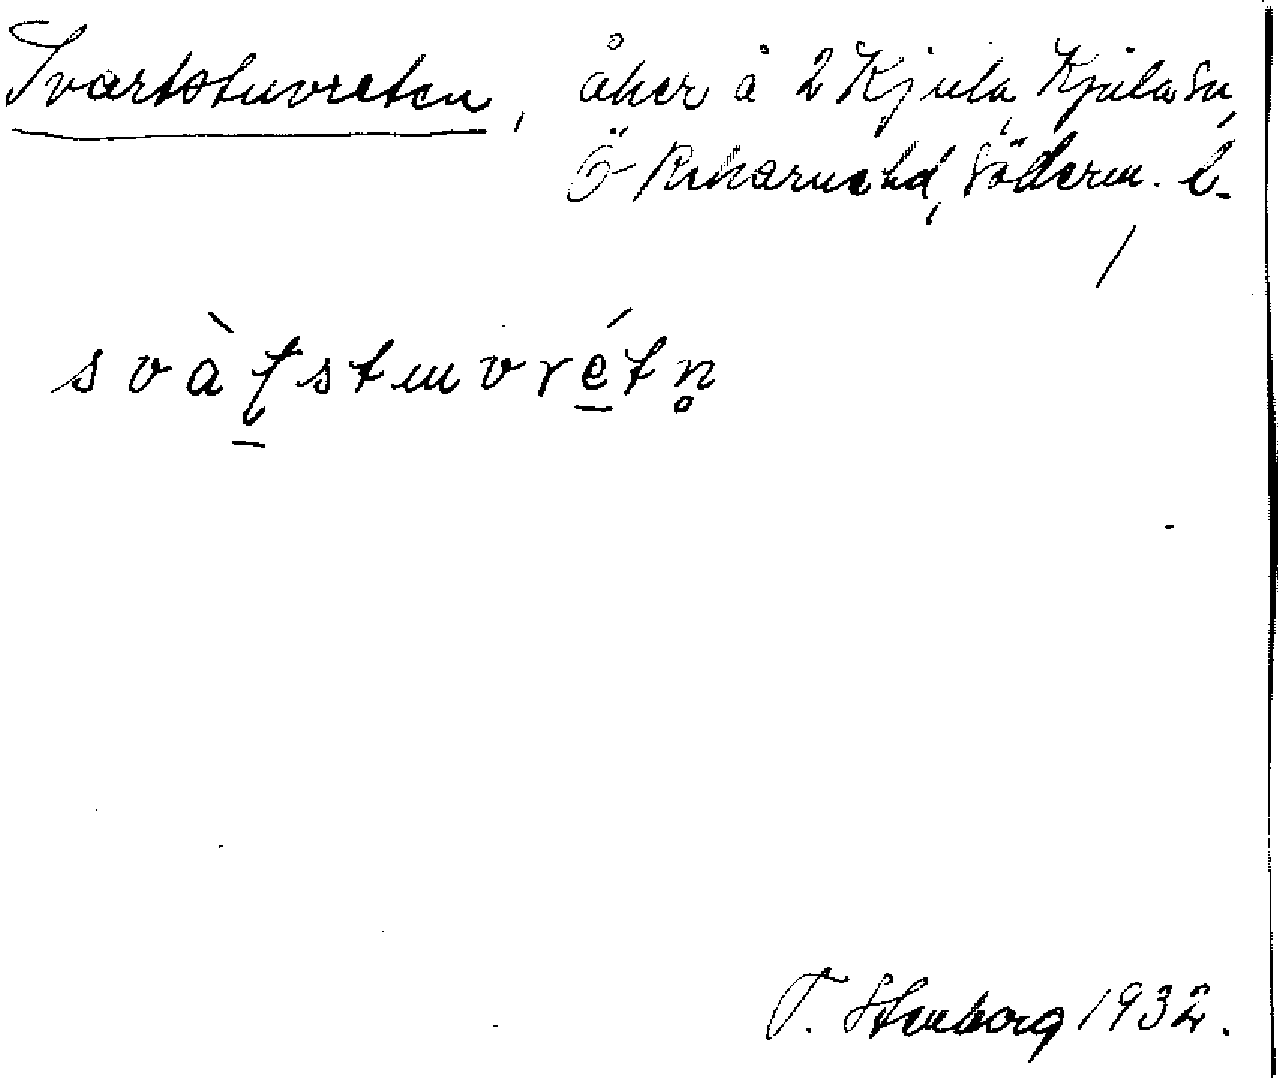 Svartstuvreten, åker å 2 Kjula, Kjula sn,
Ö Rekarne hd, Söderm. l.
svàʈstuvrétn̥
T. Stenborg 1932.